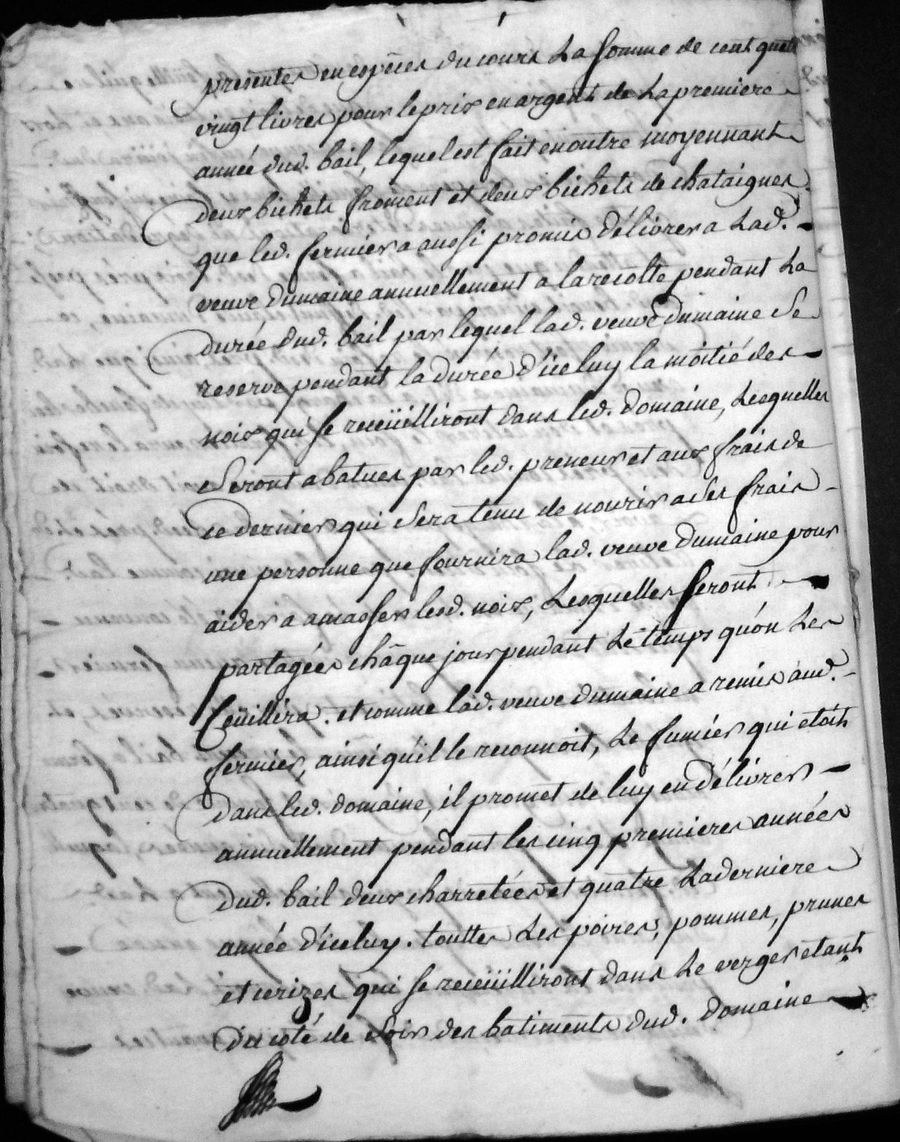 presentes en espéces du cours La somme de cent quatre
vingt livres pour le prix en argent de La premiere
année dud. bail, lequel est fait en outre moyennant
deux bichets froment et deux bichets de chataignes
que led. fermier a aussi promis délivrer a Lad.
veuve dumaine annuellement a la recolte pendant La
durée dud. bail par lequel lad. veuve dumaine Se
reserve pendant la durée d'iceluy la moitié des
noix qui se receüilliront dans led. domaine, Lesquelles
Seront abatues par led. preneur et aux frais de
ce dernier qui Sera tenu de nourir a Ses frais
une personne que fournira lad. veuve dumaine pour
aider a amasser lesd. noix, Lesquelles Seront
partagées châque jour pendant Le temps qu'on Les
Ceüillera. et comme lad. veuve dumaine a remis aud.
fermier, ainsi qu'il le reconnoit, Le fumier qui etoit
dans led. domaine, il promet de luy en délivrer
annuellement pendant les cinq premieres années
dud. bail deux charretées et quatre La derniere
année d'iceluy. touttes Les poires, pommes, prunes
et cerizes qui se receüilliront dans Le verger etant
du coté de Soir des batiments dud. domaine